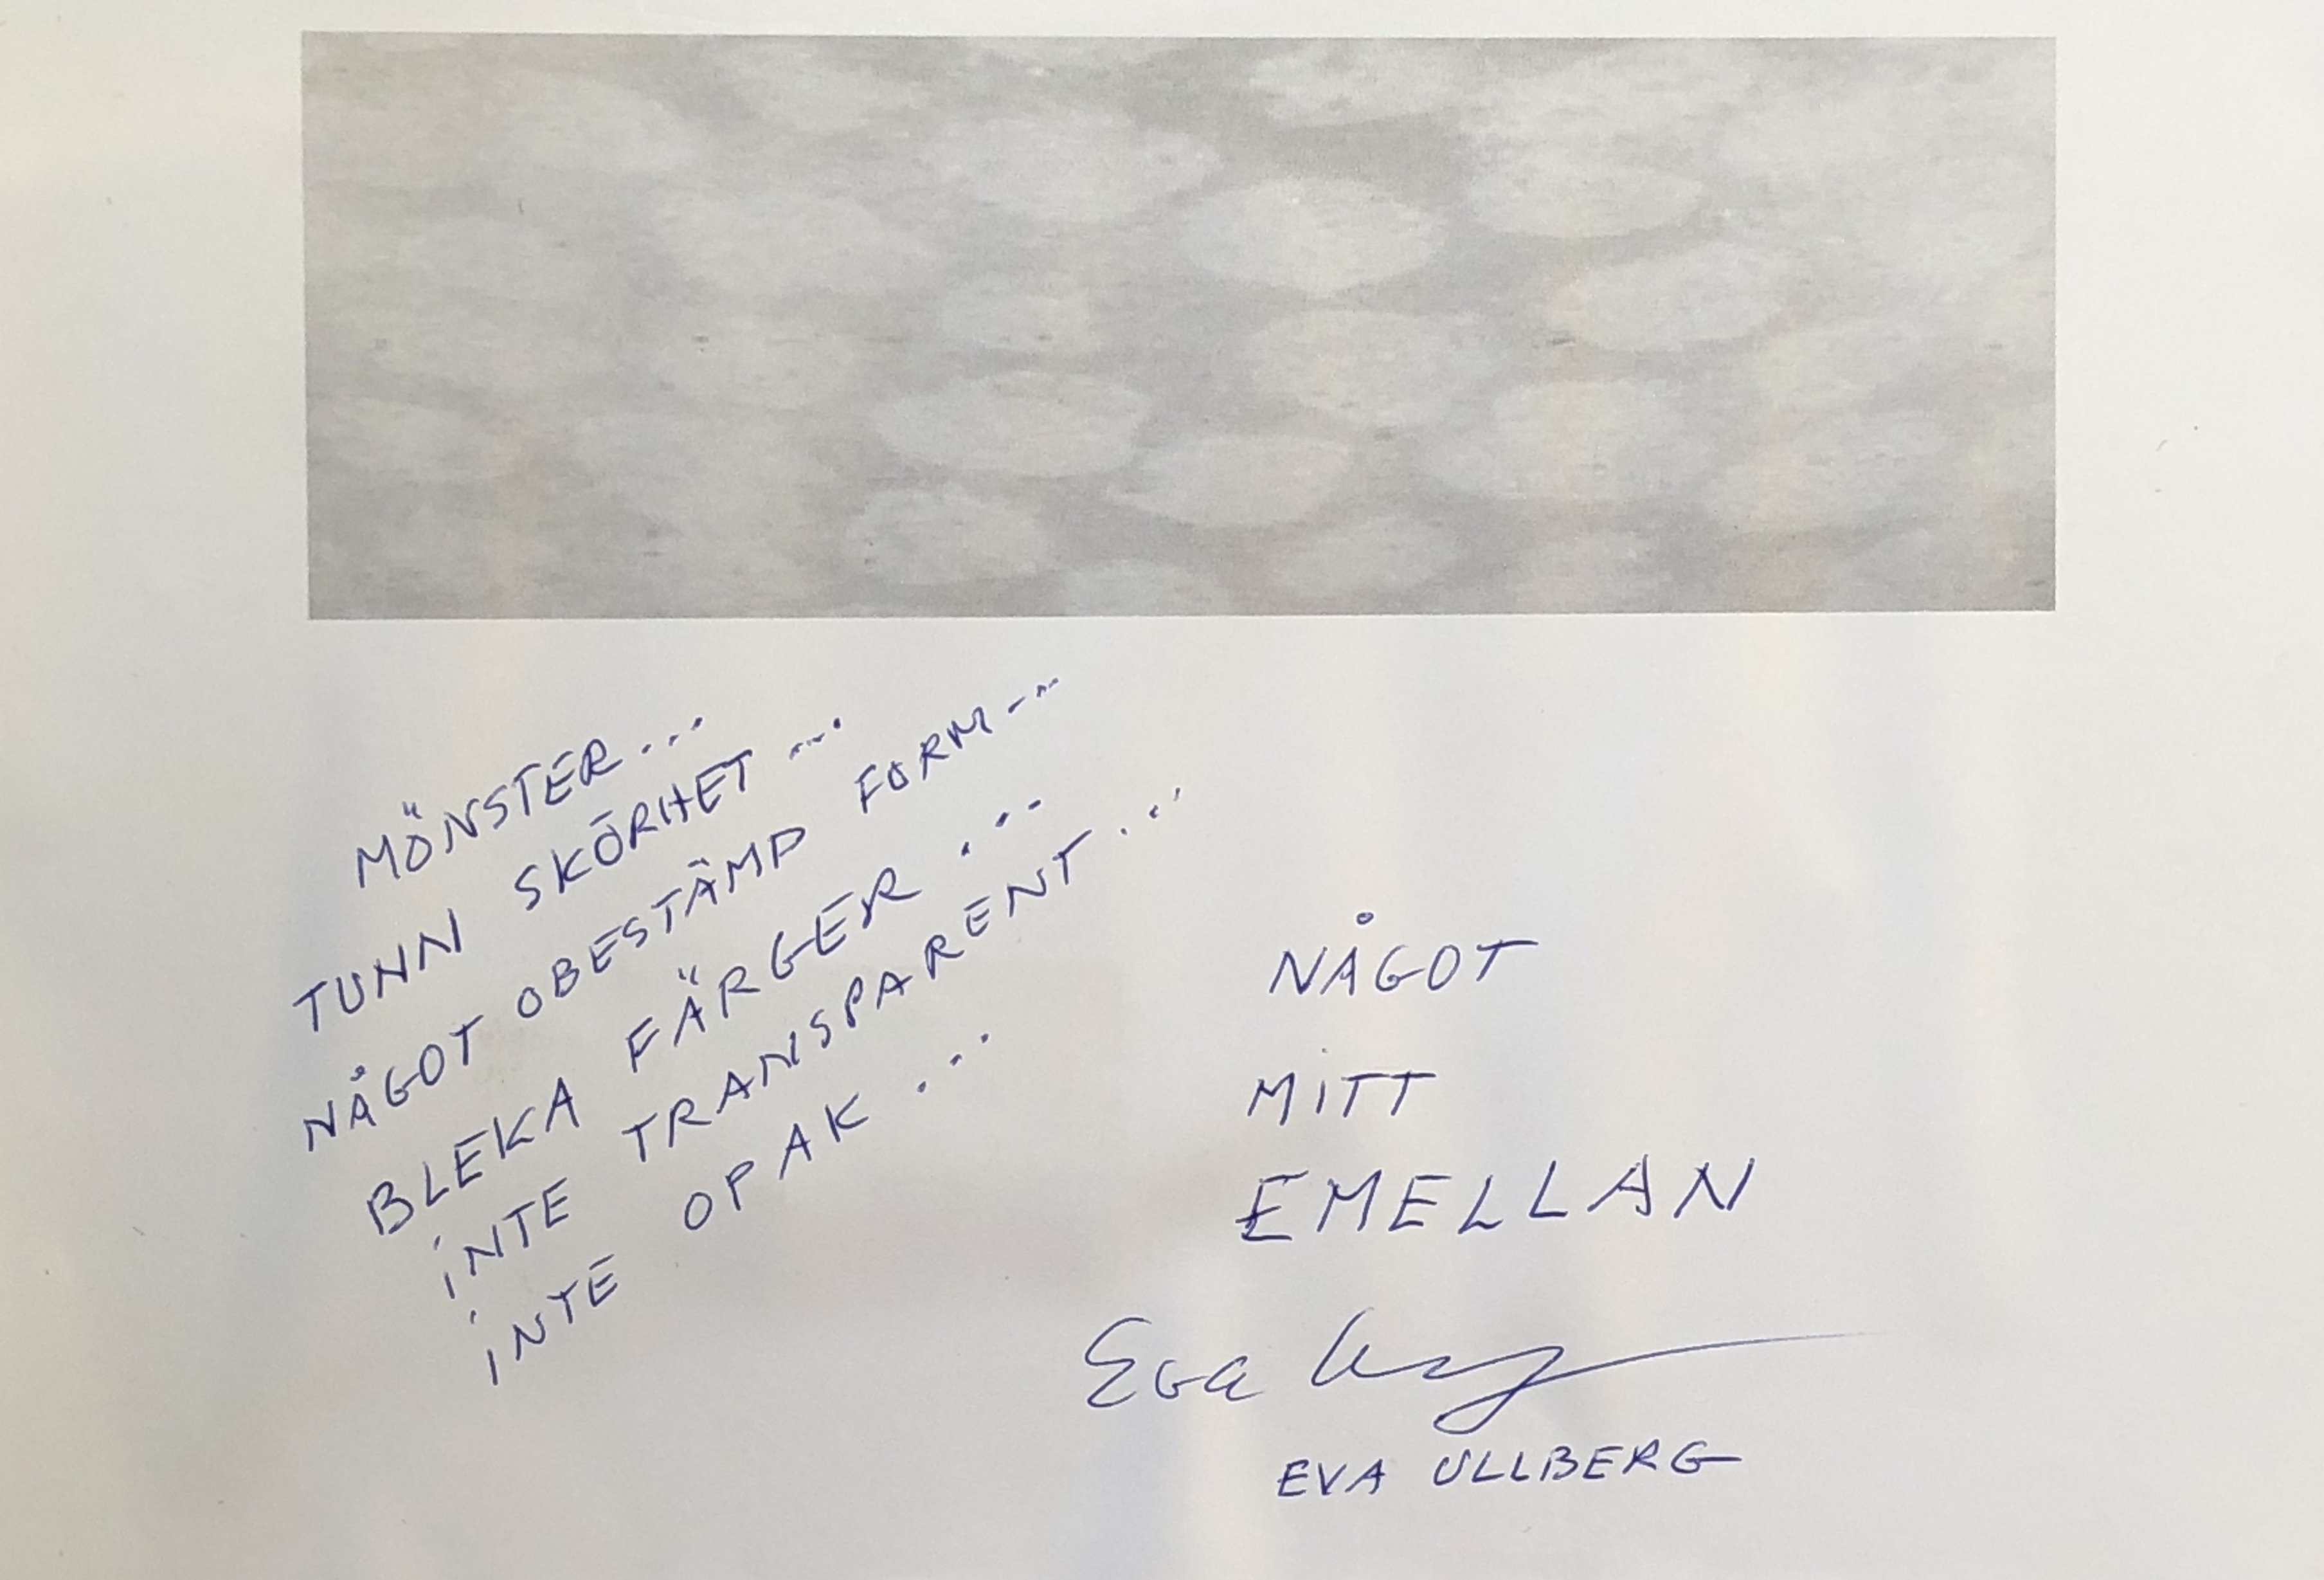 MÖNSTER...
TUNN SKÖRHET...
NÅGOT OBESTÄMD FORM...
BLEKA FÄRGER...
INTE TRANSPARENT...
INTE OPAK...
NÅGOT
MITT
EMELLAN
Eva
EVA ULLBERG